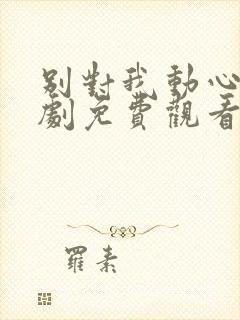 别對我動心
劇免費觀看
羅素